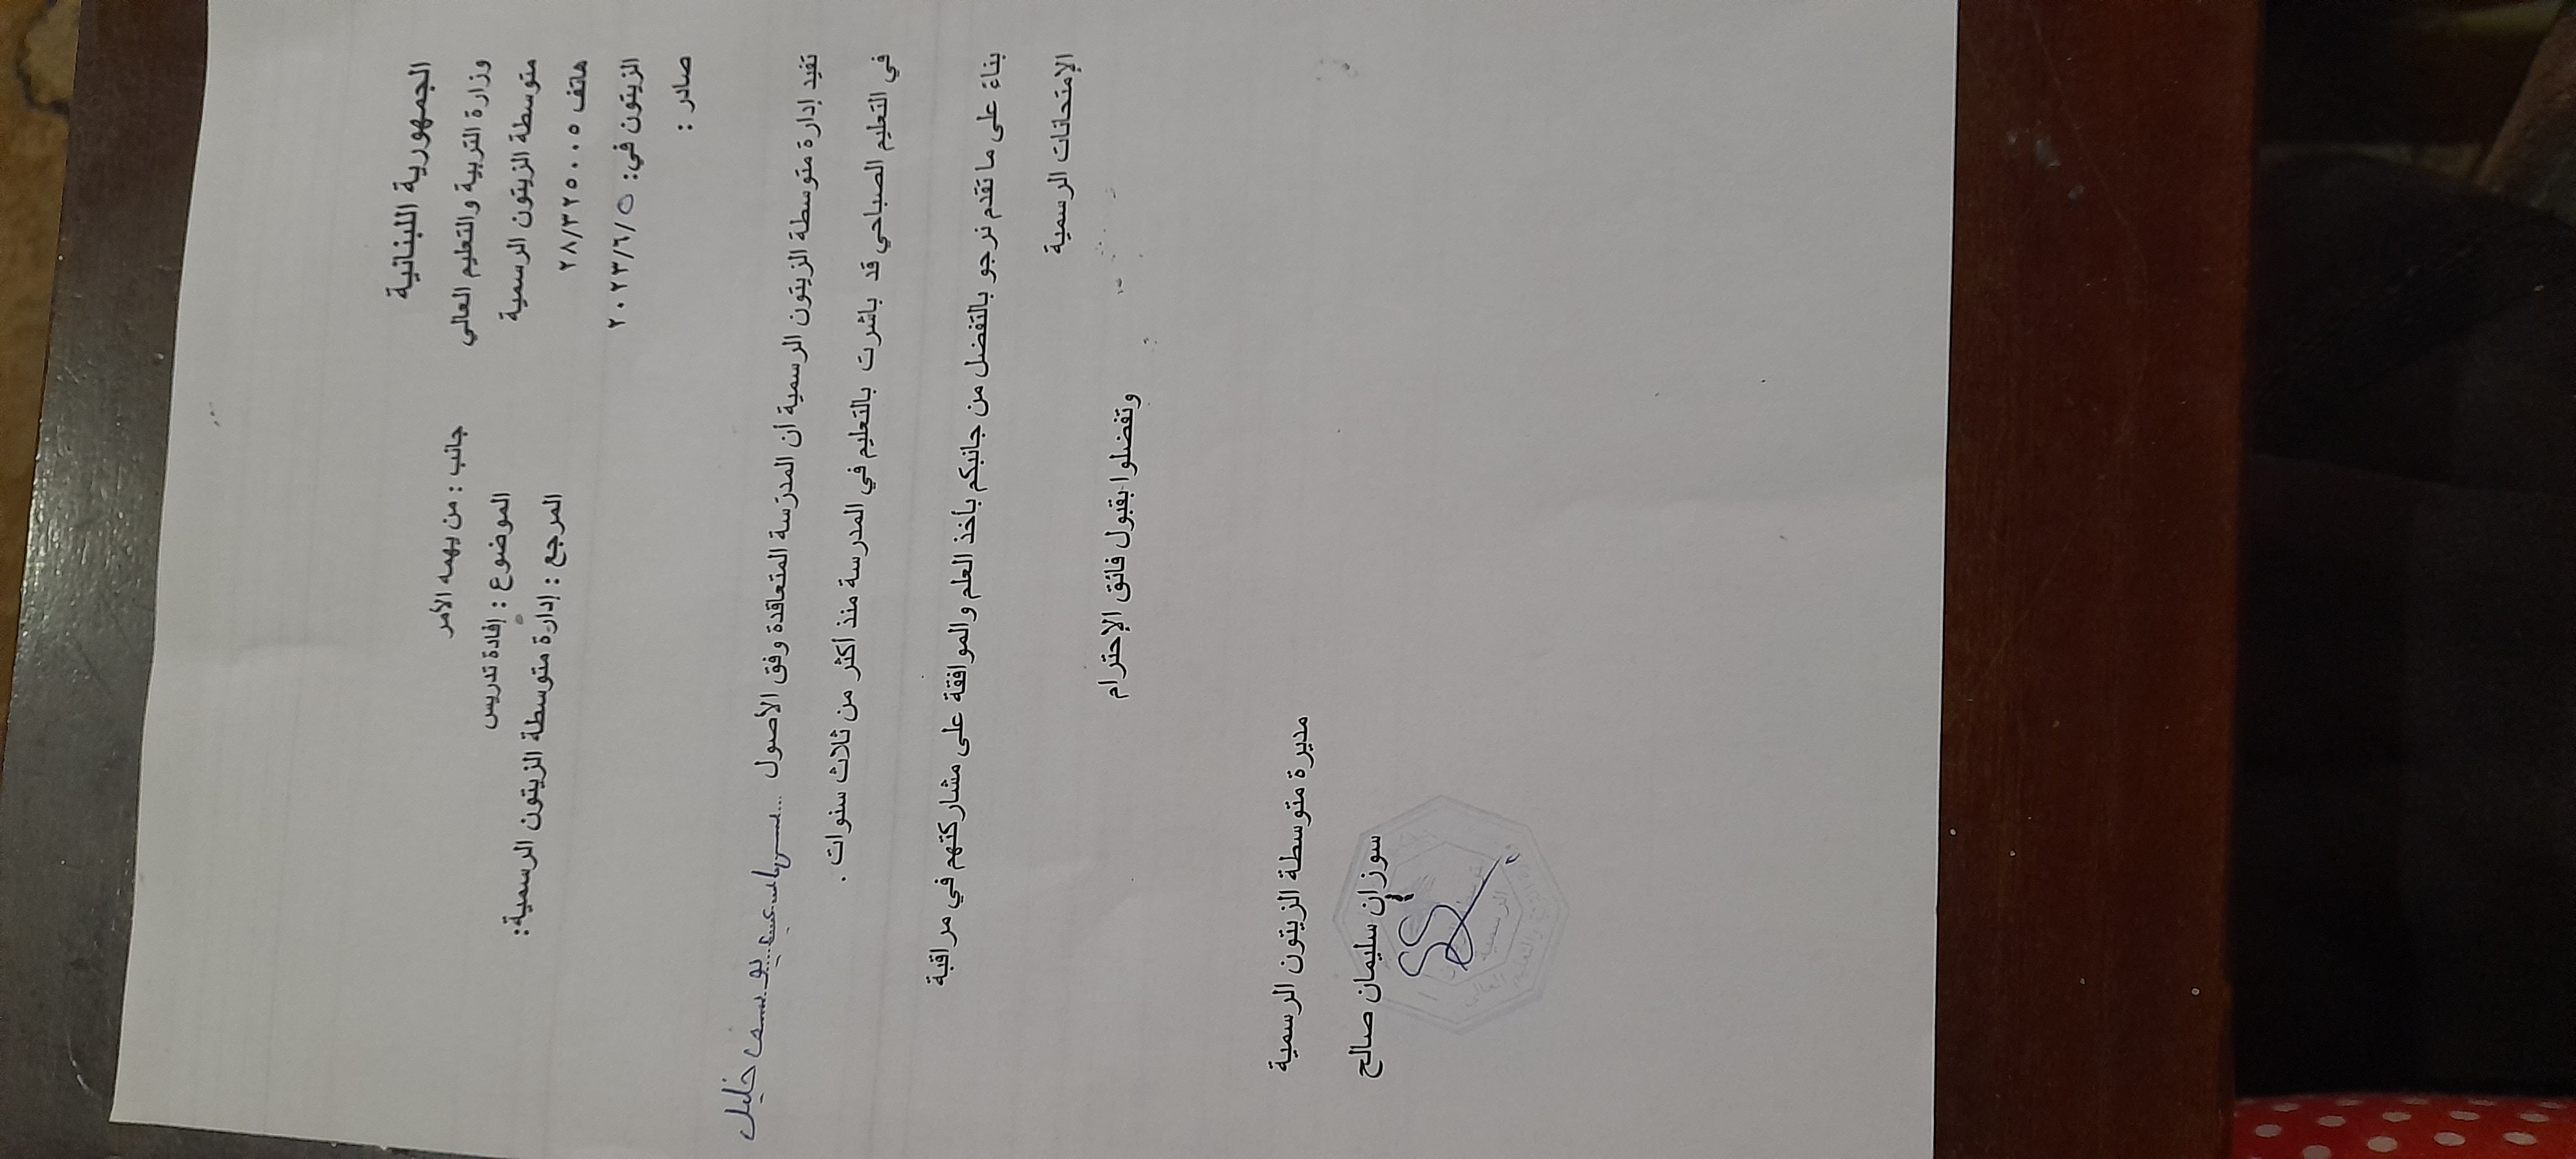 الجمهورية اللبنانية
وزارة التربية والتعليم العالي
متوسطة الزيتون الرسمية
هاتف ٢٨/٣٢٥٠٠٥
الزيتون في: ٢٠٢٣/٦/٥
صادر :
جانب : من يهمه الأمر
الموضوع : إفادة تدريس
المرجع : إدارة متوسطة الزيتون الرسمية:
تفيد إدارة متوسطة الزيتون الرسمية أن المدرّسة المتعاقدة وفق الأصول يوسف خليل
في التعليم الصباحي قد باشرت بالتعليم في المدرسة منذ أكثر من ثلاث سنوات .
بناءً على ما تقدم نرجو بالتفضل من جانبكم بأخذ العلم والموافقة على مشاركتهم في مراقبة
الإمتحانات الرسمية
وتفضلوا بقبول فائق الإحترام
مديرة متوسطة الزيتون الرسمية
سوزان سليمان صالح